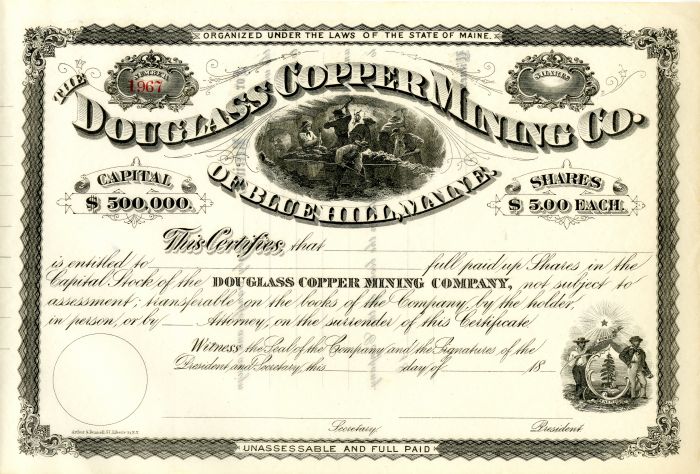 ORGANIZED UNDER THE LAWS OF THE STATE OF MAINE.
NUMBER
1967
SHARES
THE
DOUGLASS COPPER MINING CO.
OF BLUEHILL, MAINE.
CAPITAL
$ 500,000.
SHARES
$ 5.00 EACH.
This Certifies, that
is entitled to full paid up Shares in the
Capital Stock of the DOUGLASS COPPER MINING COMPANY, not subject to
assessment; transferable on the books of the Company, by the holder,
in person, or by Attorney, on the surrender of this Certificate
Witness the Seal of the Company and the Signatures of the
President and Secretary, this day of 18
Secretary.
President
UNASSESSABLE AND FULL PAID